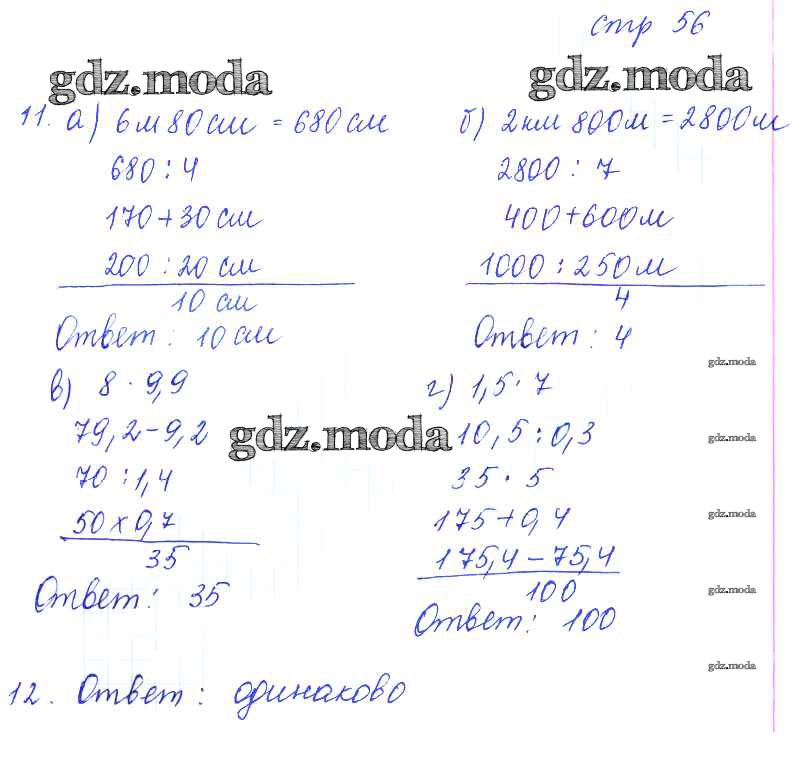 стр 56
gdz.moda gdz.moda
11. а) 6м 80см = 680см
680 : 4
170 + 30 см
200 : 20 см
10 см
Ответ : 10 см
б) 2км 800м = 2800м
2800 : 7
400 + 600м
1000 : 250 м
4
Ответ : 4
gdz.moda
в) 8 · 9,9
79,2 - 9,2
70 : 1,4
50 х 0,7
35
Ответ : 35
gdz.moda
г) 1,5 · 7
10,5 : 0,3
35 · 5
175 + 0,4
175,4 - 75,4
100
Ответ : 100
gdz.moda
gdz.moda
gdz.moda
gdz.moda
12. Ответ : одинаково